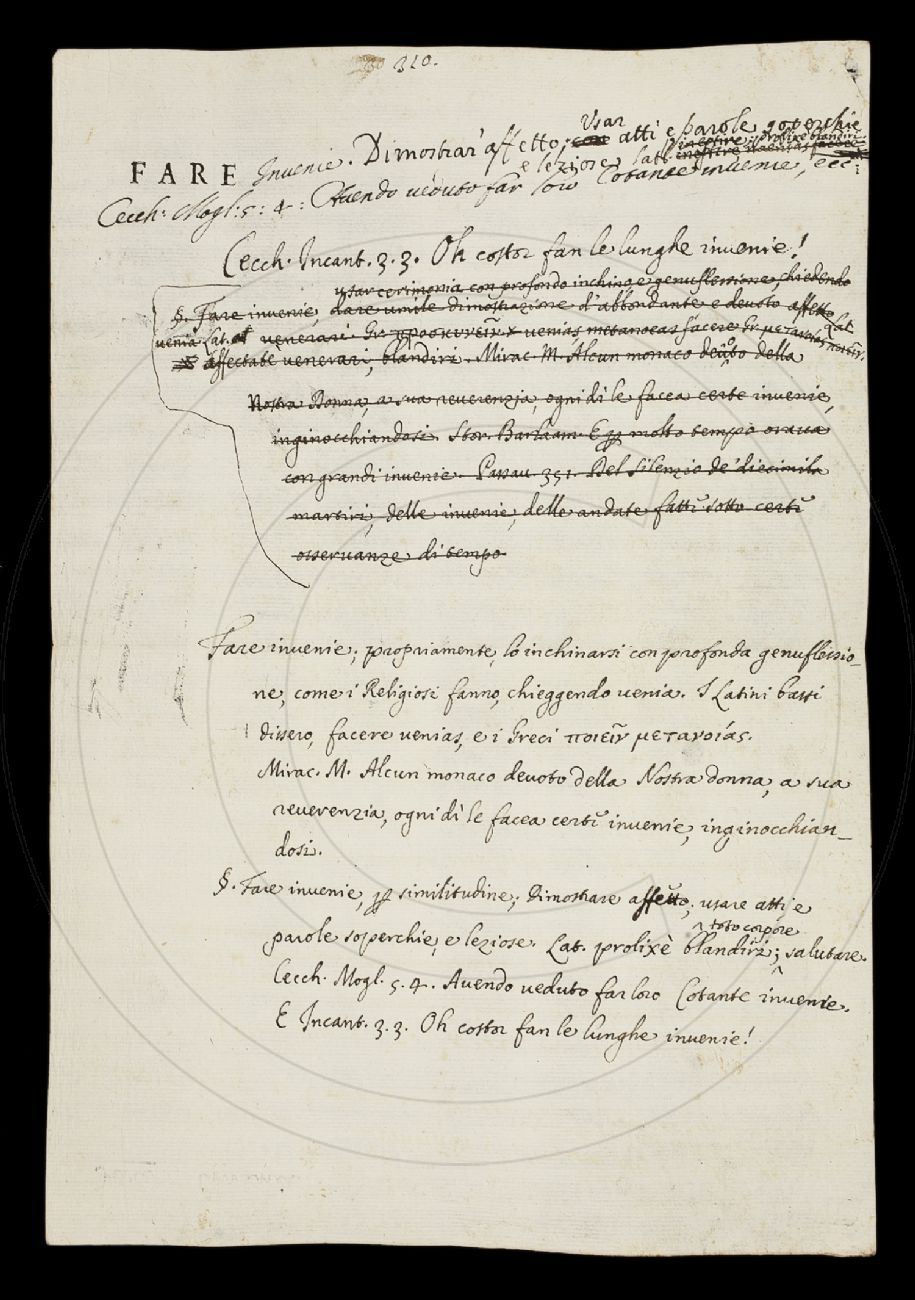 320.
FARE Invenie. Dimostrar affetto; Usar atti e parole soverchie
e leziose, lat. prolixe blandiri
Cecch: Mogl: 5: 4: Avendo veduto far loro Cotante invenie, ecc:
Cecch. Incant. 3. 3. Oh costor fan le lunghe invenie!
usar cerimonia con profondo inchino e genuflessione, chiedendo
§. Fare invenie, dare umile dimostrazione d'abbondante e devoto affetto
venia Lat. venerari Gr. προσκυνεῖν venias, metanoeas facere Gr. μετανοίας ποιεῖν.
affectate venerari, blandiri. Mirac. M. Alcun monaco devoto della
Nostra Donna, a sua reverenzia, ogni dì le facea certe invenie,
inginocchiandosi. Stor. Barlaam. E molto tempo orava
con grandi invenie. Passav. 351. Del silenzio de' diecimila
martiri, delle invenie, delle andate fatte sotto certe
osservanze di tempo
Fare invenie; propriamente, lo inchinarsi con profonda genuflessio_
ne, come i Religiosi fanno, chieggendo venia. I Latini bassi
dissero, facere venias, e i Greci ποιεῖν μετανοίας.
Mirac. M. Alcun monaco devoto della Nostra donna, a sua
reverenzia, ogni dì le facea certe invenie, inginocchian_
dosi.
§. Fare invenie, per similitudine; Dimostrare affetto; usare atti, e
toto corpore
parole soperchie, e leziose. Lat. prolixè blandiri; salutare.
Cecch. Mogl. 5. 4. Avendo veduto far loro Cotante invenie.
E Incant. 3. 3. Oh costor fan le lunghe invenie!